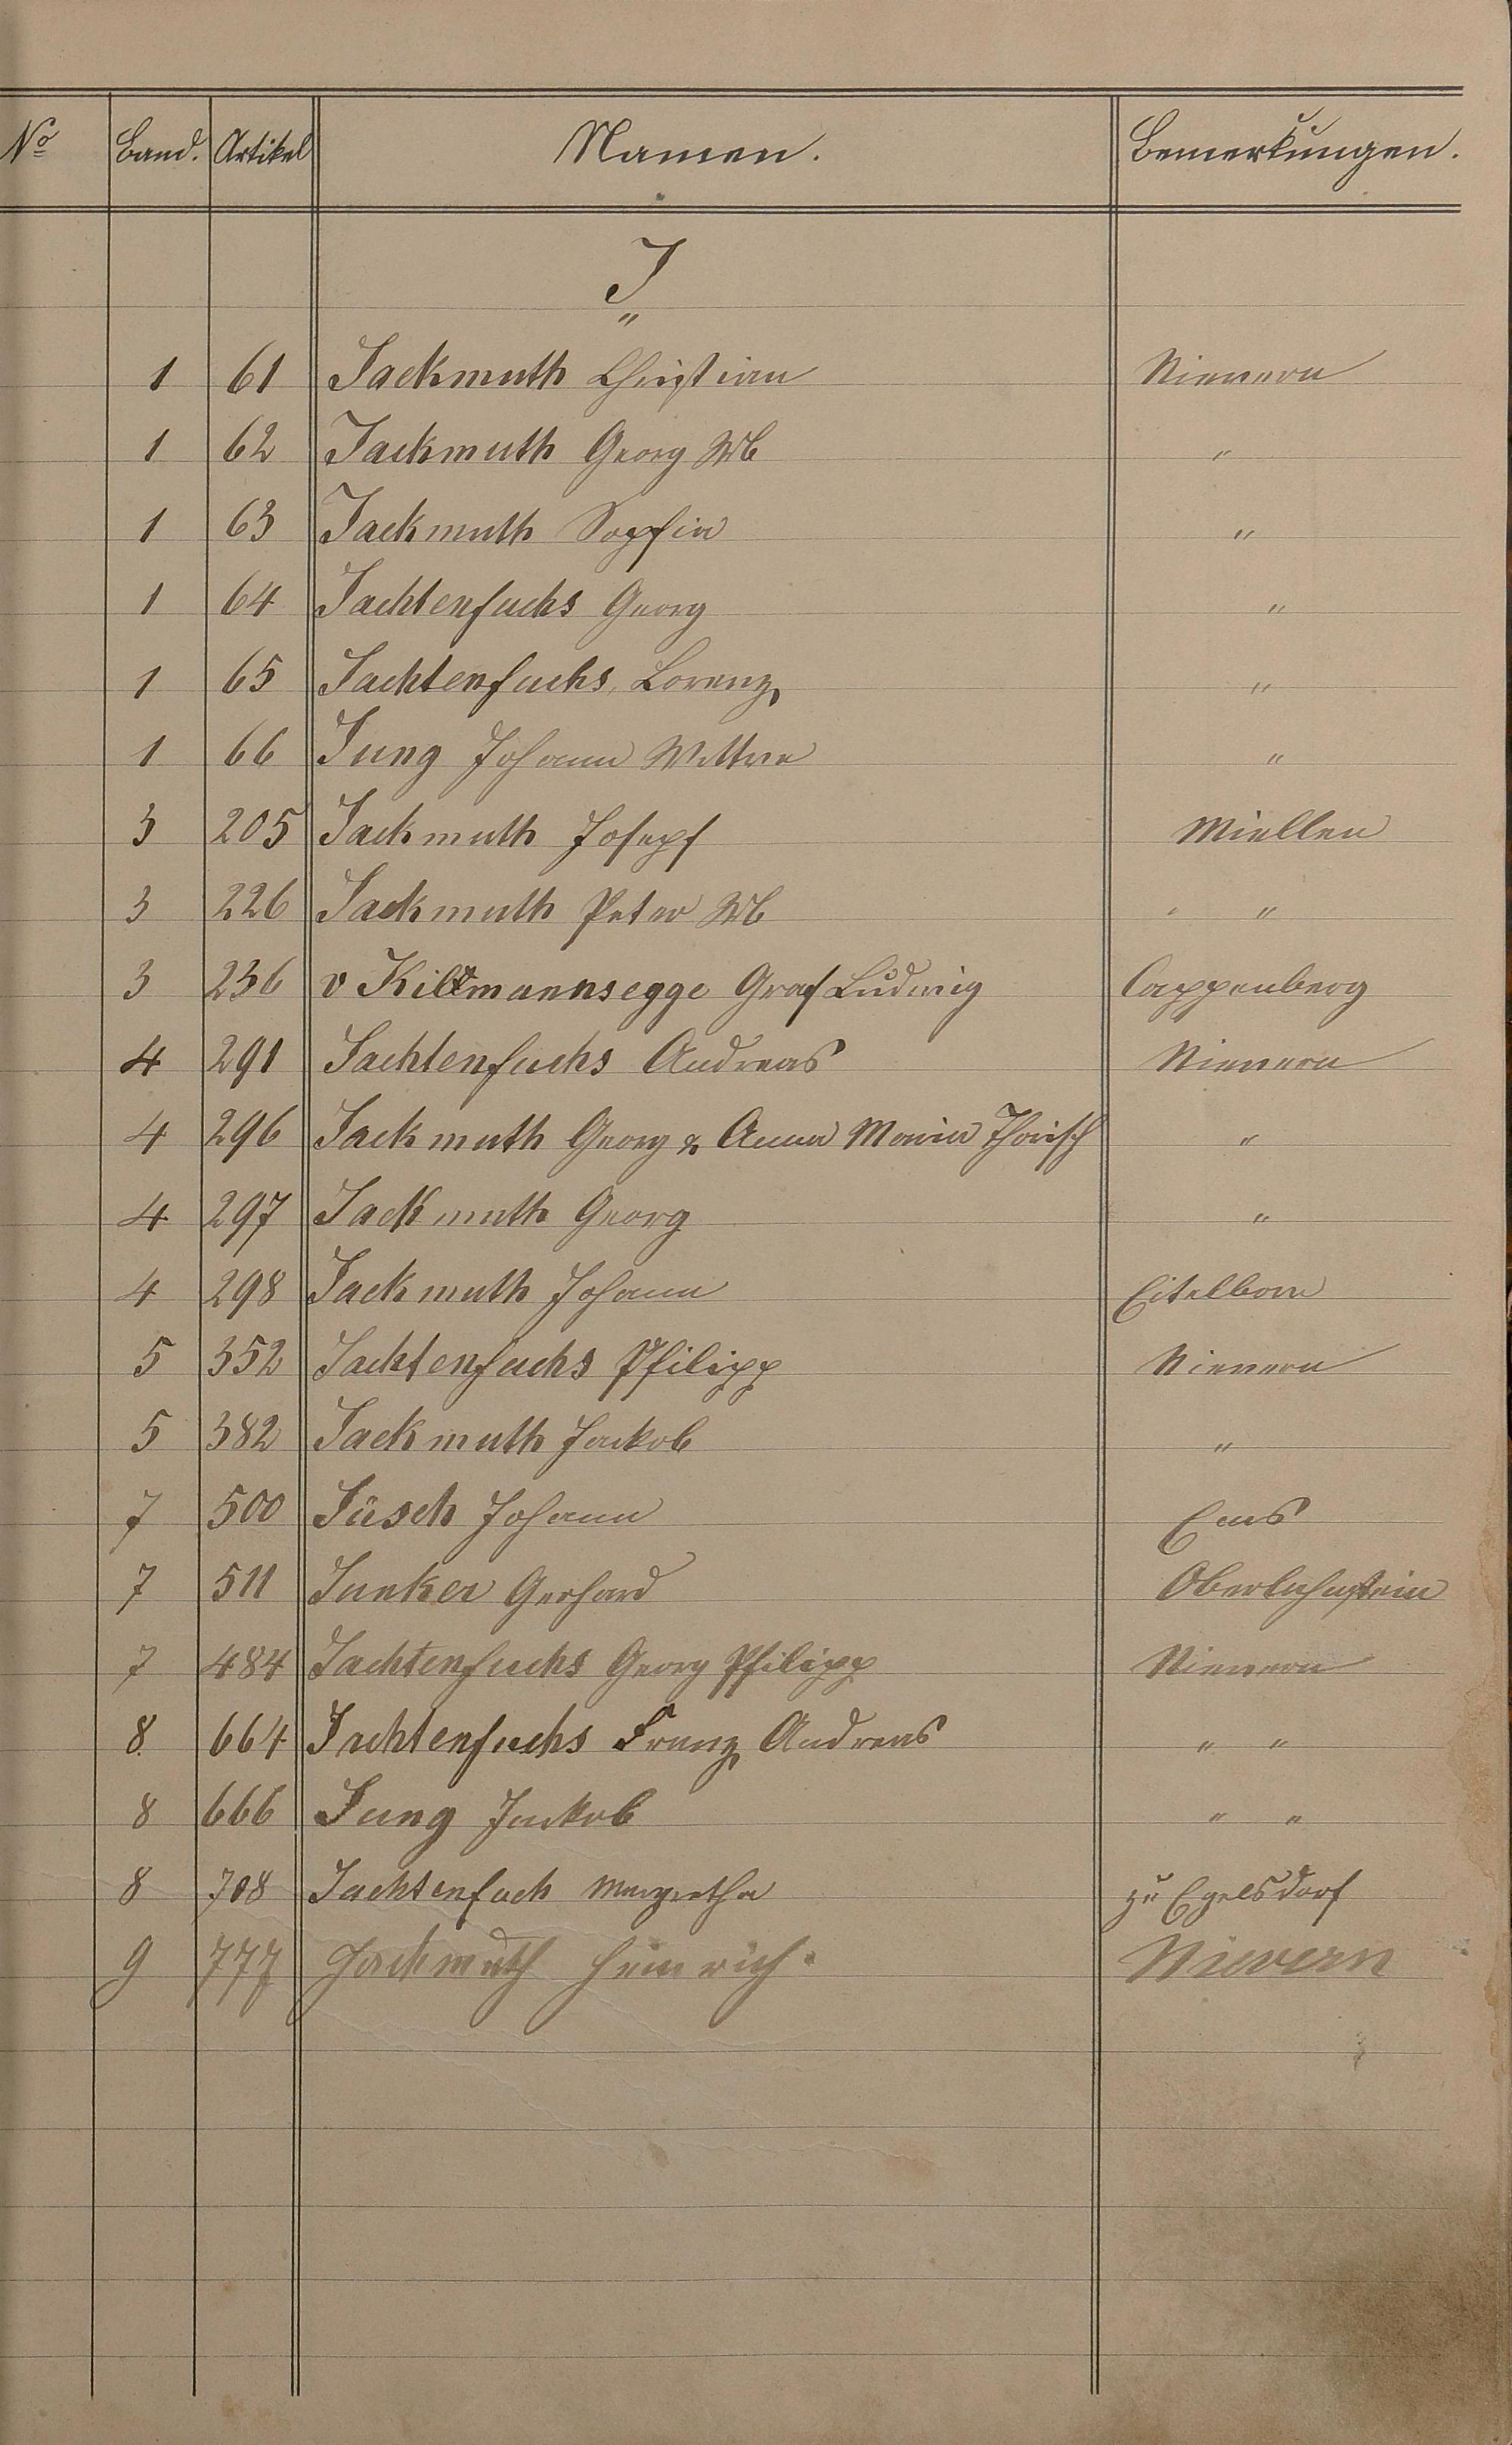 No Band. Artikel Namen. Bemerkungen.
J
"
1 61 Jackmuth Christian Nievern
1 62 Jackmuth Georg Wb "
1 63 Jackmuth Sophia "
1 64 Jachtenfuchs Georg "
1 65 Jachtenfuchs, Lorenz "
1 66 Jung Johann Wittwe "
3 205 Jackmuth Joseph Miellen
3 226 Jackmuth Peter Wb "
3 236 v Kilmannsegge Graf Ludwig Cappenberg
4 291 Jachtenfuchs Andreas Nievern
4 296 Jackmuth Georg & Anna Maria "
4 297 Jackmuth Georg "
4 298 Jackmuth Johann Eitelborn
5 352 Jachtenfuchs Philipp Nievern
5 382 Jackmuth Jackob "
7 500 Jüsch Johann Ems
7 511 Junker Gerhard Oberlahnstein
7 484 Jachtenfuchs Georg Philipp Nievern
8 664 Jachtenfuchs Franz Andreas " "
8 666 Jung Jackob " "
8 708 Jachtenfuch Margretha zu Egelsdorf
9 777 Jackmuth Heinrich. Nievern